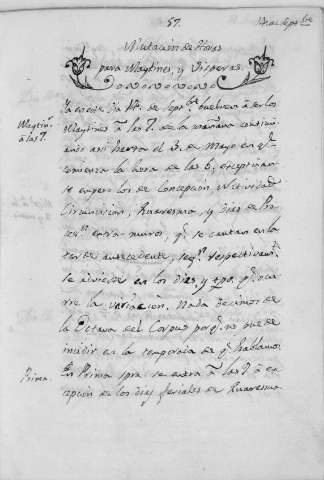 57. 14 de Sepre
Mutacion de Horas
para Maytines, y Visperas.
Ya desde dia 14. de Sepre buelven à ser los
Maytins à las 7.
Maytines à las 7. de la mañana continu
ando asi hasta el 3. de Mayo en q.
comienza la hora de las 6; exceptuan
se empero los de Concepcion, Natividad
Circuncision, Quaresma, y dias de Pro
cesn extra-muros, q. se cantan en la
tarde antecedente, segn respectivamte
se advierte en los dias, y tpo. q. ocu
rre la variacion. Nada decimos de
la Octava del Corpus porq. no puede
incidir en la temporada de q. hablamos
Prima.
En Prima spre. se entra à las 7 à ex
cepcion de los dias feriales de Quaresma